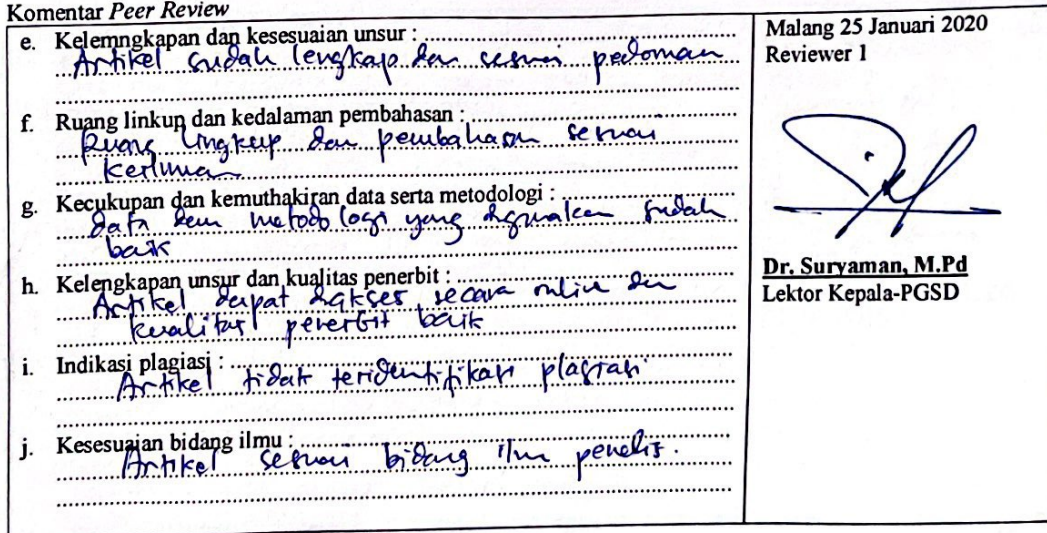 Komentar Peer Review
e. Kelemngkapan dan kesesuaian unsur :
Artikel sudah lengkap dan sesuai pedoman
f. Ruang linkup dan kedalaman pembahasan :
Ruang lingkup dan pembahasan sesuai
keilmuan
g. Kecukupan dan kemuthakiran data serta metodologi :
data dan metodologi yang digunakan sudah
baik
h. Kelengkapan unsur dan kualitas penerbit :
Artikel dapat diakses secara online dan
kualitas penerbit baik
i. Indikasi plagiasi :
Artikel tidak teridentifikasi plagiasi
j. Kesesuaian bidang ilmu :
Artikel sesuai bidang ilmu penulis.
Malang 25 Januari 2020
Reviewer 1
Dr. Suryaman, M.Pd
Lektor Kepala-PGSD